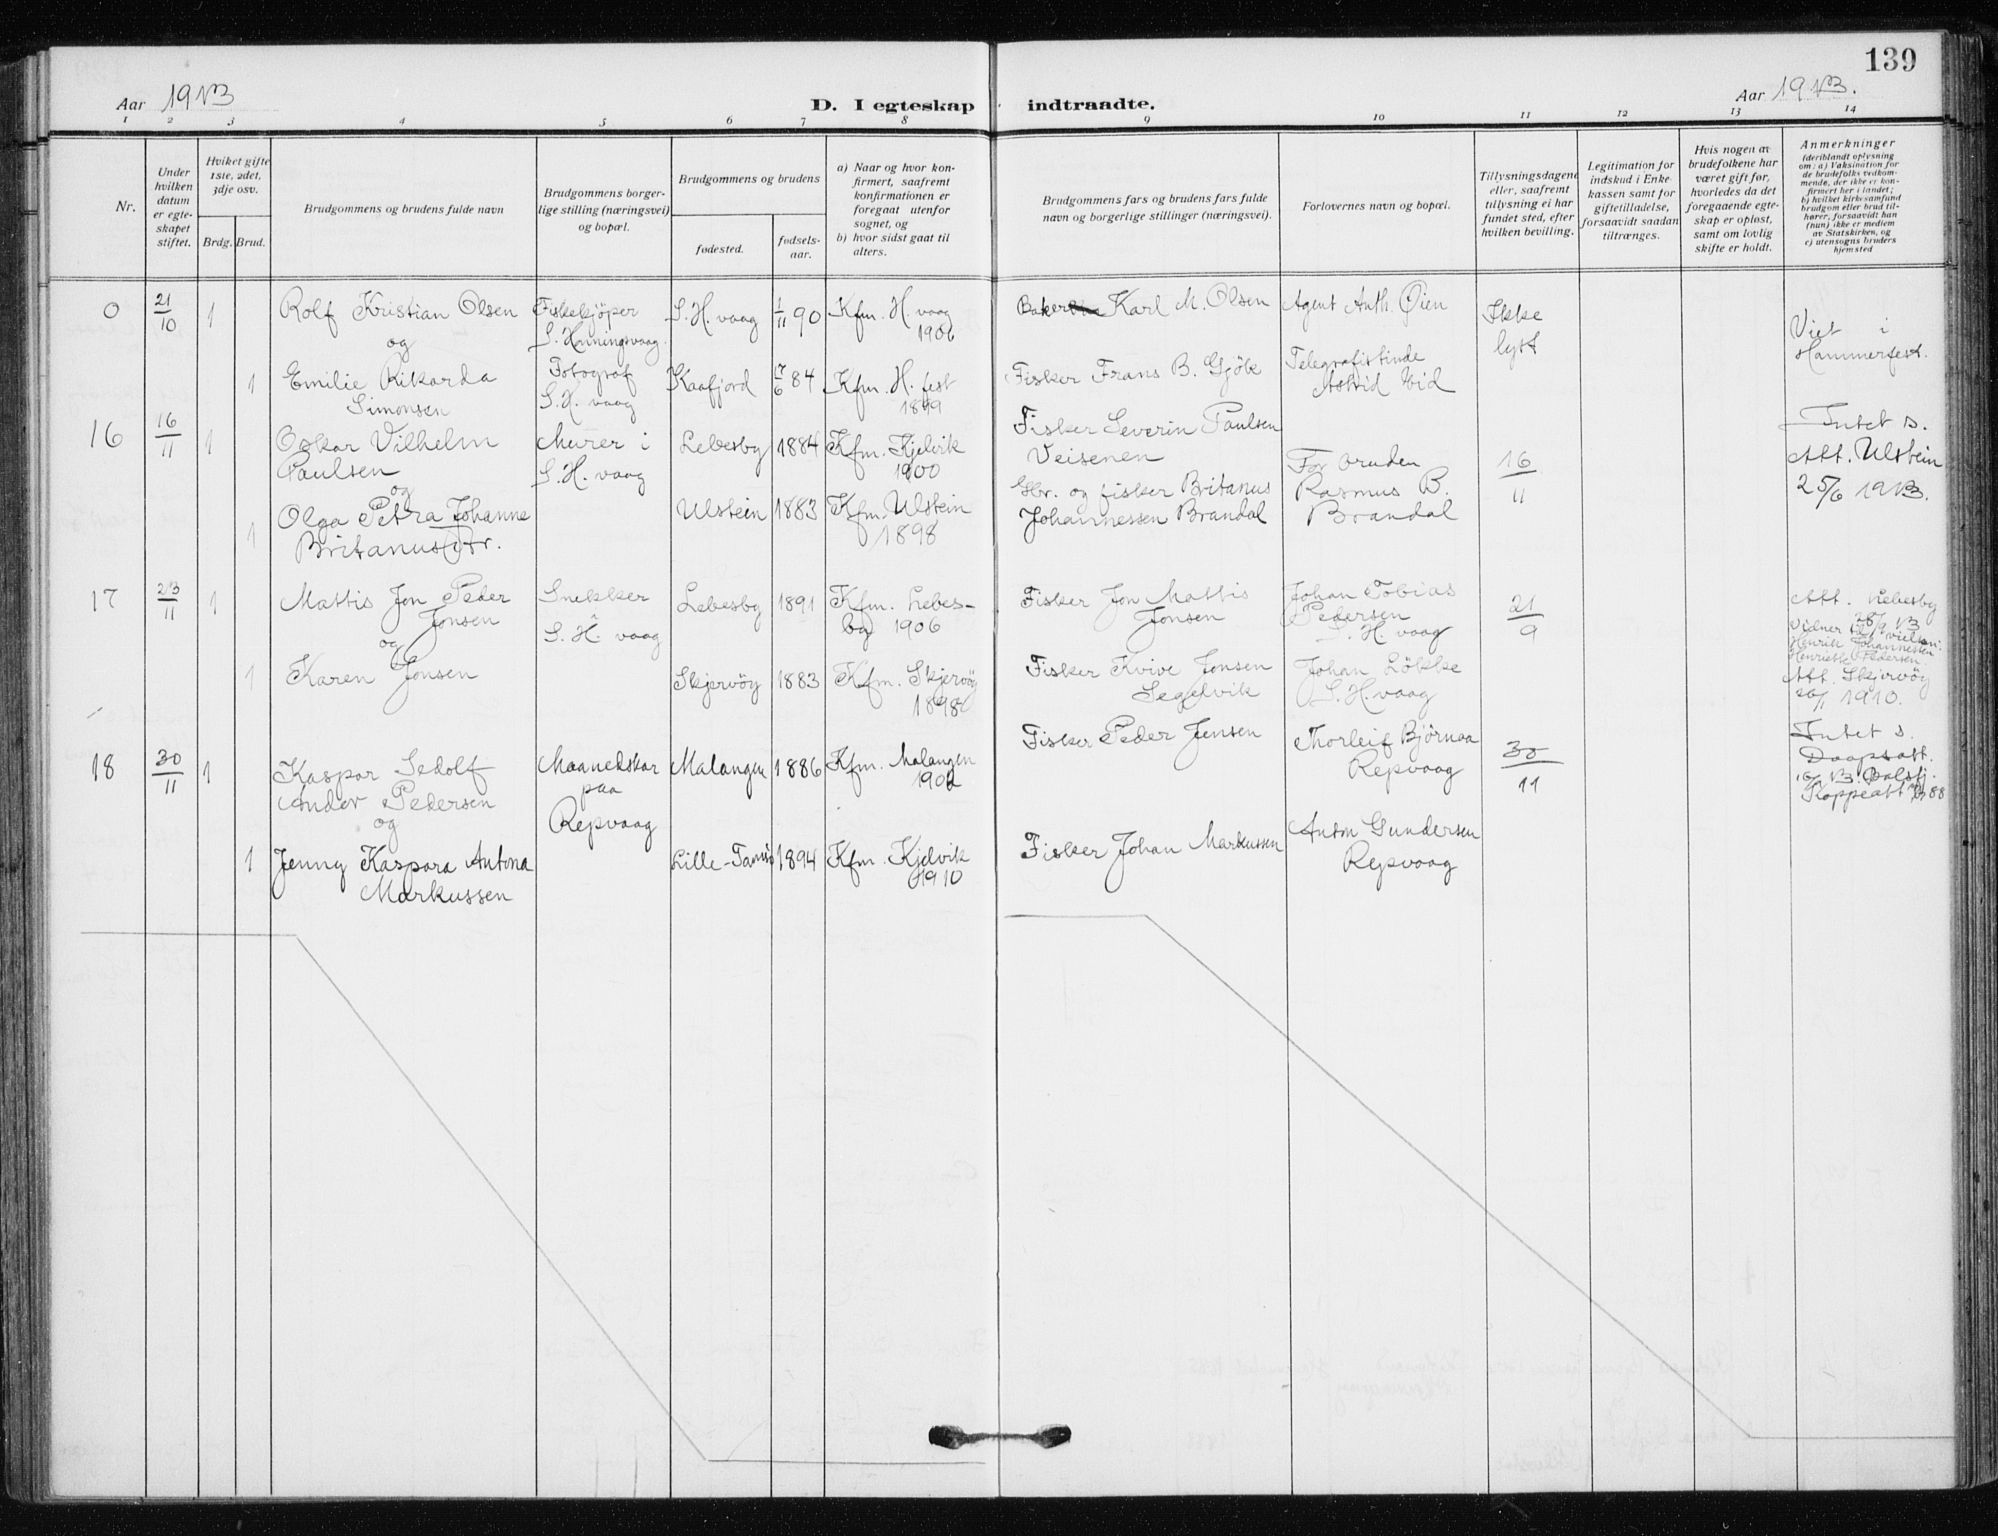 139
Aar 1913
D. I egteskap indtraadte.
Aar 1913.
1 2 3 4 5 6 7 8 9 10 11 12 13 14
Nr.
Under hvilken datum er egteskapet stiftet.
Hviket gifte 1ste, 2det, 3dje osv.
Brdg. Brud.
Brudgommens og brudens fulde navn
Brudgommens borgerlige stilling (næringsvei) og bopæl.
Brudgommens og brudens
fødested.
fødselsaar.
a) Naar og hvor konfirmert, saafremt konfirmationen er foregaat utenfor sognet, og
b) hvor sidst gaat til alters.
Brudgommens fars og brudens fars fulde navn og borgerlige stillinger (næringsvei).
Forlovernes navn og bopæl.
Tillysningsdagene eller, saafremt tillysning ei har fundet sted, efter hvilken bevilling.
Legitimation for indskud i Enkekassen samt for giftetilladelse, forsaavidt saadan tiltrænges.
Hvis nogen av brudefolkene har været gift før, hvorledes da det foregaaende egteskap er opløst, samt om lovlig skifte er holdt.
Anmerkninger
(deriblandt oplysning om: a) Vaksination for de brudefolks vedkommende, der ikke er konfirmert her i landet; b) hvilket kirkesamfund brudgom eller brud tilhører, forsaavidt han (hun) ikke er medlem av Statskirken, og c) utensogns bruders hjemsted
0 21/10 1 Rolf Kristian Olsen Fiskekjøper S. Honningsvaag. S. H. vaag 1/11 90 Kfm. H. vaag 1906 Baker Karl M. Olsen Agent Anth. Øien Ikke lyst Viet i Hammerfest.
og
1 Emilie Rikarda Simonsen Fotograf S. H. vaag Kaafjord 17/6 84 Kfm. H. fest 1899 Fisker Frans B. Gjöle Telegrafistinde Astrid
16 16/11 1 Oskar Vilhelm Paulsen Murer i S. H. vaag Lebesby 1884 Kfm. Kjelvik 1900 Fisker Severin Paulsen Veisenen 16/11 Intet s. Att. Ulstein 25/6 1913.
og
1 Olga Petra Johanne Britanusdtr. Ulstein 1883 Kfm. Ulstein 1898 Gbr. og fisker Britanus Johannessen Brandal For bruden Rasmus B. Brandal
17 23/11 1 Mattis Jon Peder Jonsen Snekker i S. H. vaag Lebesby 1891 Kfm. Lebesby 1906 Fisker Jon Mattis Jonsen Johan Tobias Pedersen S. H. vaag 21/9 Att. Lebesby 28/9 13
Vidner til vielsen: Henrik Johannessen Henriette Pedersen
og
1 Karen Jonsen Skjervöy 1883 Kfm. Skjervöy 1898 Fisker Kvive Jonsen Segelvik Johan Lökke S. H. vaag Att. Skjervöy 1910.
18 30/11 1 Kaspar Sedolf Andor Pedersen Maanedskar paa Repvaag Malangen 1886 Kfm. Malangen 1902 Fisker Peder Jensen Thorleif Björnaa Repvaag 30/11 Intet s. Daapsatt. 13. Balsfj. Koppeatt 88
og
1 Jenny Kaspara Antona Markussen Lille-Tamsö 1894 Kfm. Kjelvik 1910 Fisker Johan Markussen Anton Gundersen Repvaag